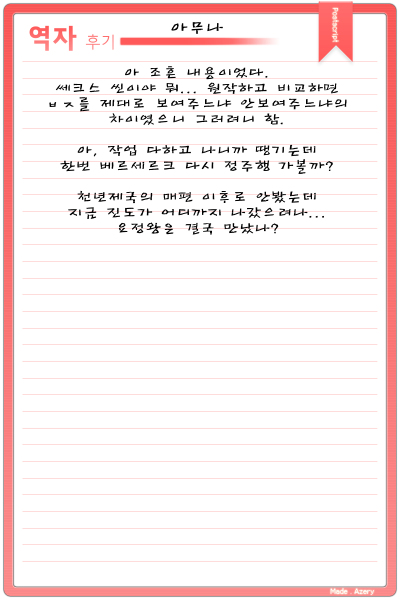 Postscript
역자 후기
아무나
아 조흔 내용이었다.
쎄크스 씬이야 뭐... 원작하고 비교하면
ㅂㅈ를 제대로 보여주느냐 안보여주느냐의
차이였으니 그러려니 함.
아, 작업 다하고 나니까 땡기는데
한번 베르세르크 다시 정주행 가볼까?
천년제국의 매편 이후로 안봤는데
지금 진도가 어디까지 나갔으려나...
요정왕은 결국 만났나?
Made . Azery